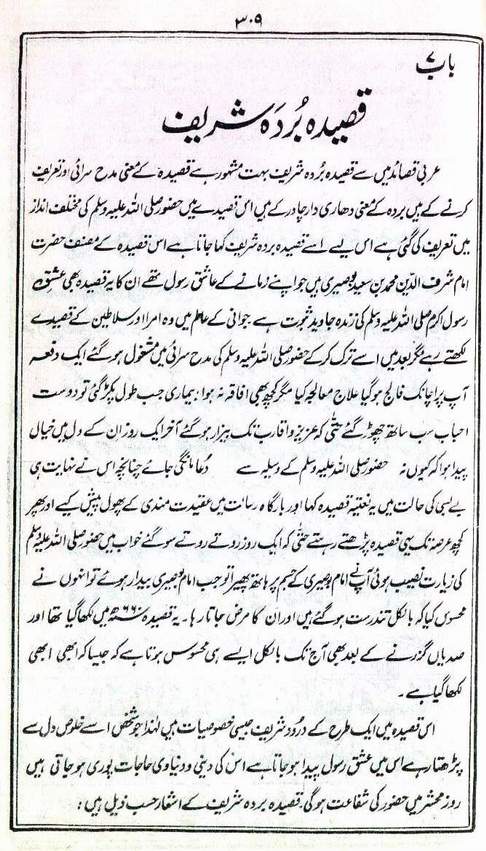 ۳۰۹
باب ۷
قصیدہ بُردَہ شریف
عربی قصائد میں سے قصیدہ بُردہ شریف بہت مشہور ہے قصیدہ کے معنی مدح سرائی اور تعریف
کرنے کے ہیں بردہ کے معنی دھاری دار چادر کے ہیں اس قصیدے میں حضور صلی اللہ علیہ وسلم کی مختلف انداز
میں تعریف کی گئی ہے اس لیے اسے قصیدہ بردہ شریف کہا جاتا ہے اس قصیدہ کے مصنف حضرت
امام شرف الدین محمد بن سعید بوصیری ہیں جو اپنے زمانے کے عاشق رسول تھے ان کا یہ قصیدہ بھی عشقِ
رسول اکرم صلی اللہ علیہ وسلم کی زندہ جاوید ثبوت ہے جوانی کے عالم میں وہ امرا اور سلاطین کے قصیدے
لکھتے رہے مگر بعد میں اسے ترک کر کے حضور صلی اللہ علیہ وسلم کی مدح سرائی میں مشغول ہو گئے ایک دفعہ
آپ پر اچانک فالج ہو گیا علاج معالجہ کیا مگر کچھ بھی افاقہ نہ ہوا بیماری جب طول پکڑ گئی تو دوست
احباب سب ساتھ چھوڑ گئے حتٰی کہ عزیز و اقارب تک بیزار ہو گئے آخر ایک روز ان کے دل میں خیال
پیدا ہوا کہ کیوں نہ حضور صلی اللہ علیہ وسلم کے وسیلہ سے دُعا مانگی جائے چنانچہ اس نے نہایت ہی
بے بسی کی حالت میں یہ نعتیہ قصیدہ کہا اور بارگاہ رسالت میں عقیدت مندی کے پھول پیش کیے اور پھر
کچھ عرصہ تک یہی قصیدہ پڑھتے رہتے حتٰی کہ ایک روز روتے روتے سو گئے خواب میں حضور صلی اللہ علیہ وسلم
کی زیارت نصیب ہوئی آپ نے امام بوصیری کے جسم پر ہاتھ پھیرا تو جب امام بوصیری بیدار ہوئے تو انہوں نے
محسوس کیا کہ بالکل تندرست ہو گئے ہیں اور ان کا مرض جاتا رہا۔ یہ قصیدہ ۶۶۰ھ میں لکھا گیا تھا اور
صدیاں گزرنے کے بعد بھی آج تک بالکل ایسے ہی محسوس ہوتا ہے کہ جیسا کہ ابھی ابھی
لکھا گیا ہے۔
اس قصیدہ میں ایک طرح کے درود شریف جیسی خصوصیات ہیں لہٰذا جو شخص اسے خلوص دل سے
پڑھتا رہے اس میں عشق رسول پیدا ہو جاتا ہے اس کی دینی و دنیاوی حاجات پوری ہو جاتی ہیں
روز محشر میں حضور کی شفاعت ہو گی۔ قصیدہ بردہ شریف کے اشعار حسب ذیل ہیں: